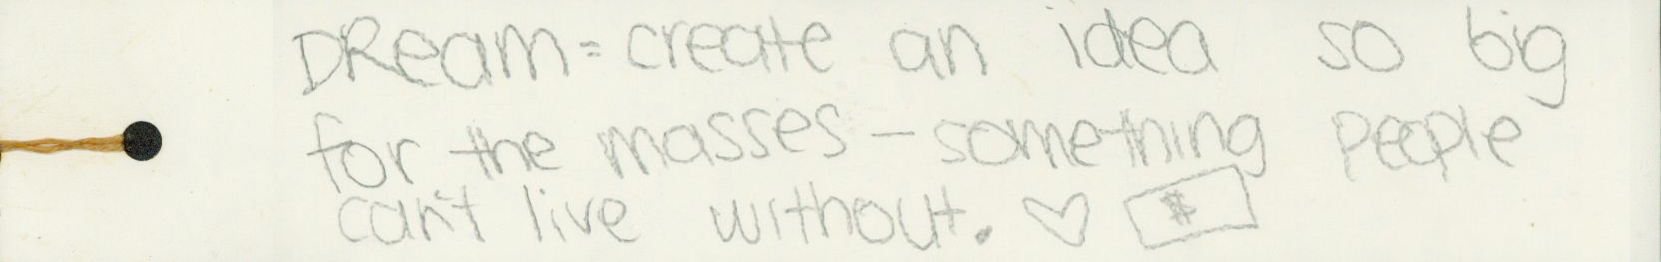 DReam = create an idea so big
for the masses - something people
can't live without. ♡ $